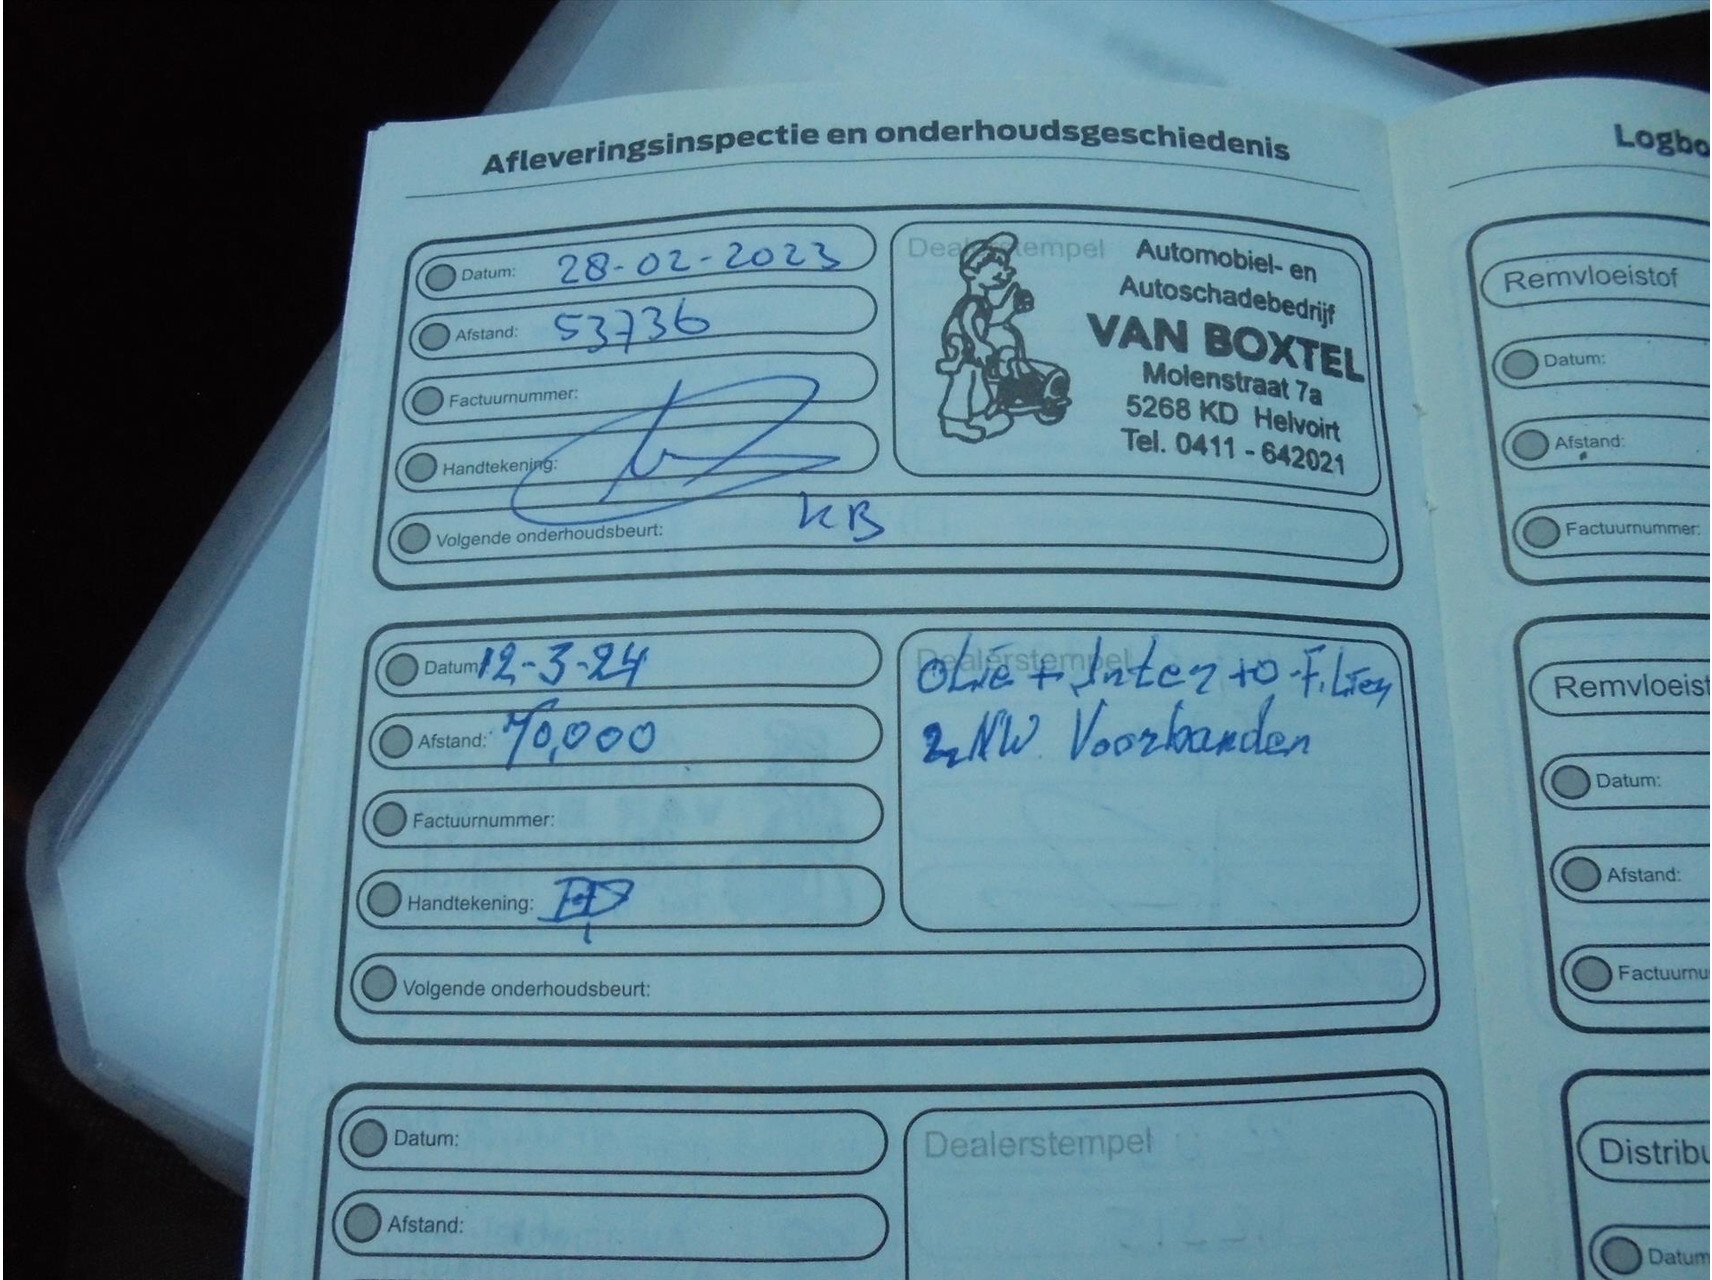 Afleveringsinspectie en onderhoudsgeschiedenis
Datum: 28-02-2023
Afstand: 53736
Factuurnummer:
Handtekening:
Volgende onderhoudsbeurt: KB
Dealerstempel
Automobiel- en
Autoschadebedrijf
VAN BOXTEL
Molenstraat 7a
5268 KD Helvoirt
Tel. 0411 - 642021
Datum: 12-3-24
Afstand: 70,000
Factuurnummer:
Handtekening:
Volgende onderhoudsbeurt:
Dealerstempel
OLie + Inter
2 NW. Voorbanden
Datum:
Afstand:
Dealerstempel
Logbo
Remvloeistof
Datum:
Afstand:
Factuurnummer:
Remvloeist
Datum:
Afstand:
Factuurnu
Distribu
Datum